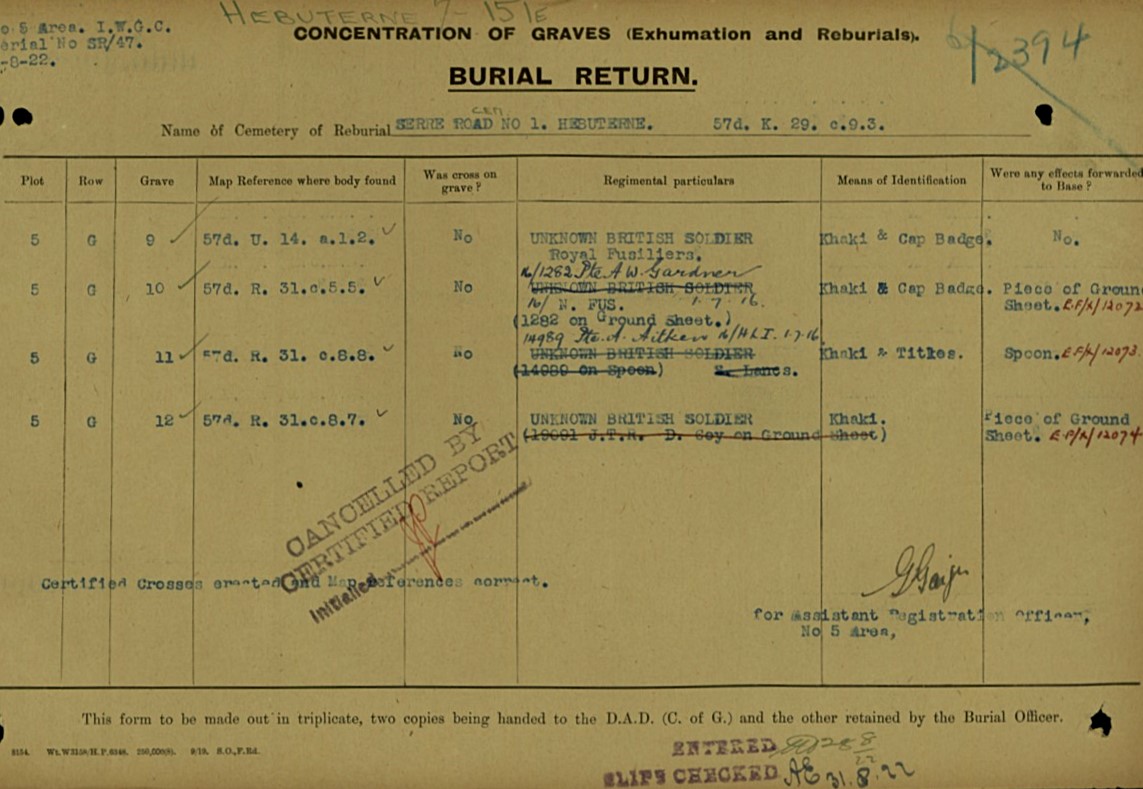 HEBUTERNE 7- 15/E
o 5 Area. I.W.G.C.
erial No SR/47.
-8-22.
CONCENTRATION OF GRAVES (Exhumation and Reburials).
2394
BURIAL RETURN.
CEM
Name of Cemetery of Reburial SERRE ROAD NO 1. HEBUTERNE. 57d. K. 29. c.9.3.
Plot Row Grave Map Reference where body found Was cross on grave? Regimental particulars Means of Identification Were any effects forwarded to Base?
5 G 9 57d. U. 14. a.1.2. No UNKNOWN BRITISH SOLDIER Khaki & Cap Badge. No.
Royal Fusiliers.
16/1282 Pte A W. Gardner
5 G 10 57d. R. 31.c.5.5. No UNKNOWN BRITISH SOLDIER Khaki & Cap Badge. Piece of Ground
16/ N. FUS. 1.7.16. Sheet. E.F/R/12072
(1282 on Ground Sheet.)
14989 Pte. A. Aitken 16/H.L.I. 1.7.16.
5 G 11 57d. R. 31. c.8.8. No UNKNOWN BRITISH SOLDIER Khaki & Titles. Spoon. E.F/R/12073
(14989 on Spoon) E. Lancs.
5 G 12 57d. R. 31.c.8.7. No UNKNOWN BRITISH SOLDIER Khaki. Piece of Ground
(19091 J.T.R. D. Coy on Ground Sheet) Sheet. E.F/R/12074
CANCELLED BY
CERTIFIED REPORT
Initialled
Certified Crosses erected and Map References correct.
for Assistant Registration Officer,
No 5 Area,
This form to be made out in triplicate, two copies being handed to the D.A.D. (C. of G.) and the other retained by the Burial Officer.
8154. Wt.W3159/H.P.6348. 250,000(8). 9/19. S.O.,F.Rd.
ENTERED 28 8/22
SLIPS CHECKED AE 31.8.22